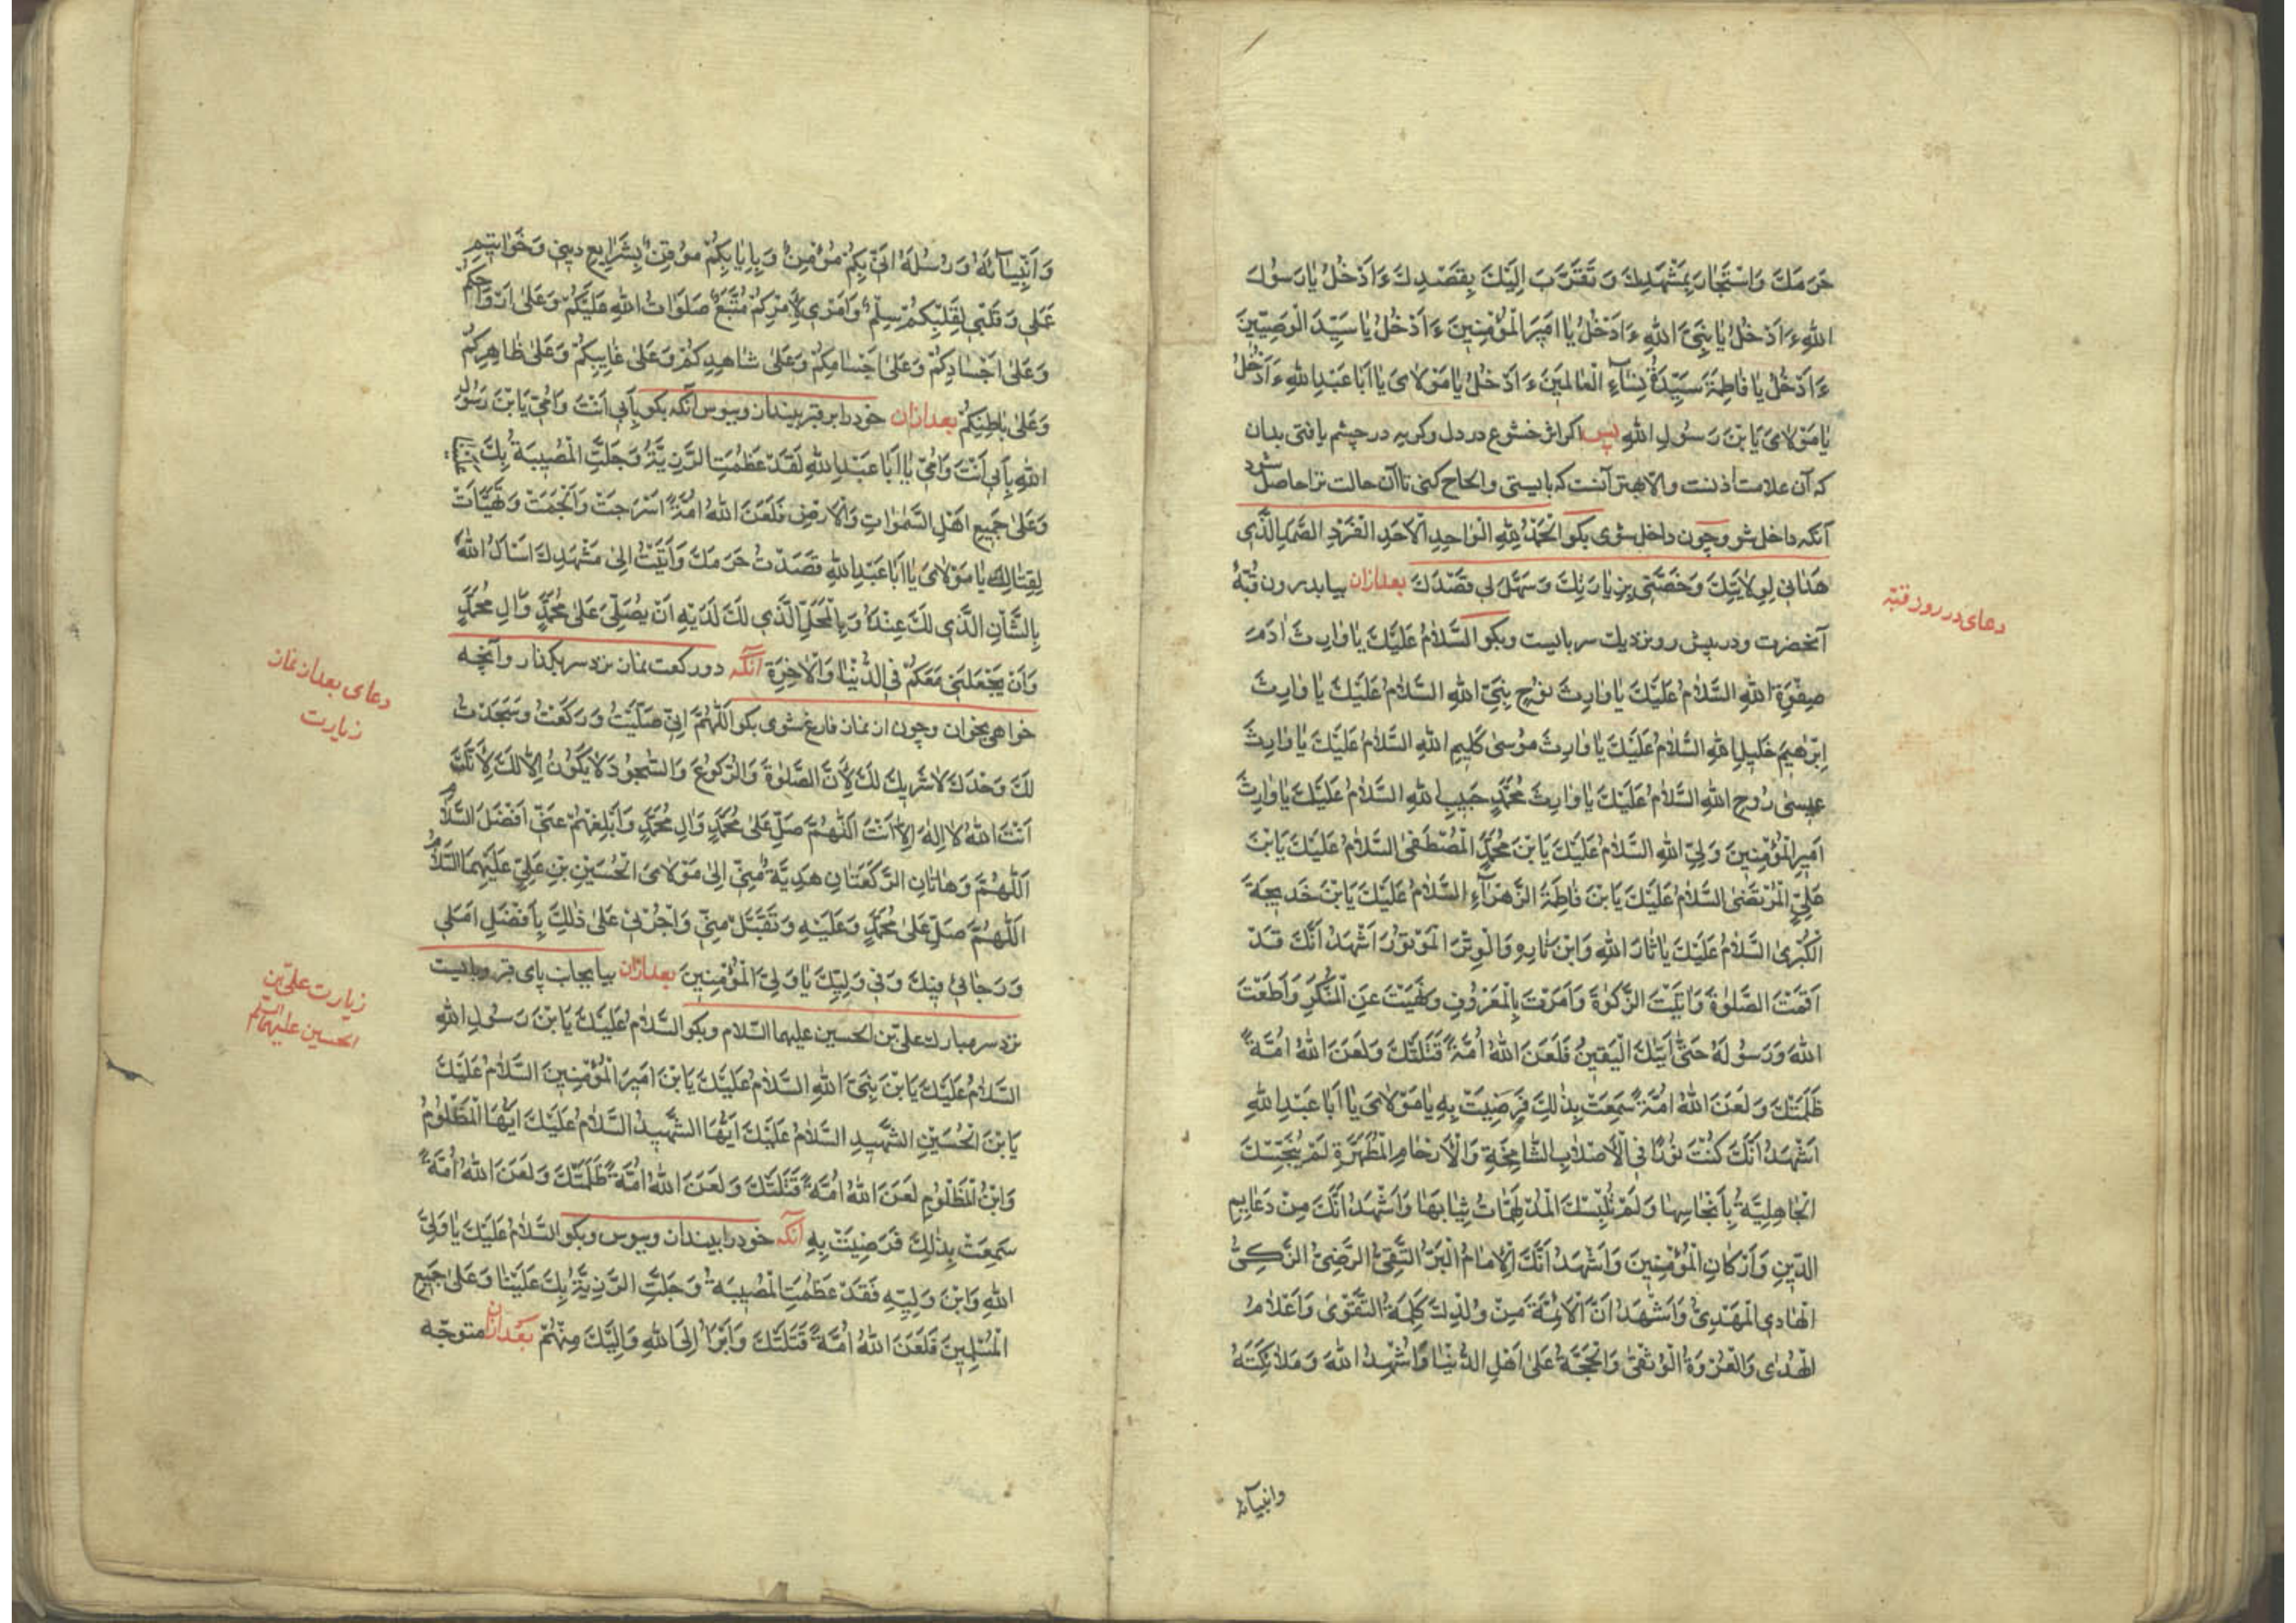 حَرَمَكَ وَاسْتَجَارَ بِمَشْهَدِكَ وَتَقَرَّبَ اِلَيْكَ بِقَصْدِكَ ءَاَدْخُلُ يَا رَسُولَ
اللهِ ءَاَدْخُلُ يَا نَبِىَّ اللهِ ءَاَدْخُلُ يَا اَمِيرَ الْمُؤْمِنِينَ ءَاَدْخُلُ يَا سَيِّدَ الْوَصِيّينَ
ءَاَدْخُلُ يَا فَاطِمَةُ سَيِّدَةَ نِسَاءِ الْعَالَمِينَ ءَاَدْخُلُ يَا مَوْلَاىَ يَا اَبَا عَبْدِ اللهِ ءَاَدْخُلُ
يَا مَوْلَاىَ يَا بْنَ رَسُولِ اللهِ پس اكر اثر خشوع در دل وكريه در چشم يافتى بدان
كه آن علامت اذنست والا بهتر آنست كه بايستى والحاح كنى تا آن حالت ترا حاصل شود
آنكه داخل شو وچون داخل شوى بكو اَلْحَمْدُ لِلّهِ الْوَاحِدِ الْاَحَدِ الْفَرْدِ الصَّمَدِ الَّذِى
هَدَانِى لِوِلَايَتِكَ وَخَصَّنِى بِزِيَارَتِكَ وَسَهَّلَ لِى قَصْدَكَ بعد ازان بيا بدرون قبّهٔ
دعاى در رود قبّه
آنحضرت ودر پيش رو نزديك سر بايست وبكو اَلسَّلَامُ عَلَيْكَ يَا وَارِثَ ادَمَ
صِفْوَةِ اللهِ السَّلَامُ عَلَيْكَ يَا وَارِثَ نُوحٍ نَبِىِّ اللهِ السَّلَامُ عَلَيْكَ يَا وَارِثَ
اِبْرهِيمَ خَلِيلِ اللهِ السَّلَامُ عَلَيْكَ يَا وَارِثَ مُوسى كَلِيمِ اللهِ السَّلَامُ عَلَيْكَ يَا وَارِثَ
عِيسى رُوحِ اللهِ السَّلَامُ عَلَيْكَ يَا وَارِثَ مُحَمَّدٍ حَبِيبِ اللهِ السَّلَامُ عَلَيْكَ يَا وَارِثَ
اَمِيرِ الْمُؤْمِنِينَ وَلِىِّ اللهِ السَّلَامُ عَلَيْكَ يَا بْنَ مُحَمَّدٍ الْمُصْطَفى السَّلَامُ عَلَيْكَ يَا بْنَ
عَلِىٍّ الْمُرْتَضى السَّلَامُ عَلَيْكَ يَا بْنَ فَاطِمَةَ الزَّهْرَاءِ السَّلَامُ عَلَيْكَ يَا بْنَ خَدِيجَةَ
الْكُبْرى السَّلَامُ عَلَيْكَ يَا ثَارَ اللهِ وَابْنَ ثَارِهِ وَالْوِتْرَ الْمَوْتُورَ اَشْهَدُ اَنَّكَ قَدْ
اَقَمْتَ الصَّلوةَ وَاتَيْتَ الزَّكوةَ وَاَمَرْتَ بِالْمَعْرُوفِ وَنَهَيْتَ عَنِ الْمُنْكَرِ وَاَطَعْتَ
اللهَ وَرَسُولَهُ حَتّى اَتيكَ الْيَقِينُ فَلَعَنَ اللهُ اُمَّةً قَتَلَتْكَ وَلَعَنَ اللهُ اُمَّةً
ظَلَمَتْكَ وَلَعَنَ اللهُ اُمَّةً سَمِعَتْ بِذلِكَ فَرَضِيَتْ بِهِ يَا مَوْلَاىَ يَا اَبَا عَبْدِ اللهِ
اَشْهَدُ اَنَّكَ كُنْتَ نُورًا فِى الْاَصْلَابِ الشَّامِخَةِ وَالْاَرْحَامِ الْمُطَهَّرَةِ لَمْ تُنَجِّسْكَ
الْجَاهِلِيَّةُ بِاَنْجَاسِهَا وَلَمْ تُلْبِسْكَ الْمُدْلَهِمَّاتُ ثِيَابَهَا وَاَشْهَدُ اَنَّكَ مِنْ دَعَايِمِ
الدّينِ وَاَرْكَانِ الْمُؤْمِنِينَ وَاَشْهَدُ اَنَّكَ الْاِمَامُ الْبَرُّ التَّقِىُّ الرَّضِىُّ الزَّكِىُّ
الْهَادِى الْمَهْدِىُّ وَاَشْهَدُ اَنَّ الْاَئِمَّةَ مِنْ وُلْدِكَ كَلِمَةُ التَّقْوى وَاَعْلَامُ
الْهُدى وَالْعُرْوَةُ الْوُثْقى وَالْحُجَّةُ عَلى اَهْلِ الدُّنْيَا وَاُشْهِدُ اللهَ وَمَلَائِكَتَهُ
وانبيائه
وَاَنْبِيَائَهُ وَرُسُلَهُ اَنِّى بِكُمْ مُؤْمِنٌ وَبِاِيَابِكُمْ مُوقِنٌ بِشَرَايِعِ دِينِى وَخَوَاتِيمِ
عَمَلِى وَقَلْبِى لِقَلْبِكُمْ سِلْمٌ وَاَمْرِى لِاَمْرِكُمْ مُتَّبِعٌ صَلَوَاتُ اللهِ عَلَيْكُمْ وَعَلى اَرْوَاحِكُمْ
وَعَلى اَجْسَادِكُمْ وَعَلى اَجْسَامِكُمْ وَعَلى شَاهِدِكُمْ وَعَلى غَايِبِكُمْ وَعَلى ظَاهِرِكُمْ
وَعَلى بَاطِنِكُمْ بعد ازان خود را بر قبر بيندان وببوس آنكه بكو بِاَبِى اَنْتَ وَاُمِّى يَا بْنَ رَسُولِ
اللهِ بِاَبِى اَنْتَ وَاُمِّى يَا اَبَا عَبْدِ اللهِ لَقَدْ عَظُمَتِ الرَّزِيَّةُ وَجَلَّتِ الْمُصِيبَةُ بِكَ عَلَيْنَا
وَعَلى جَمِيعِ اَهْلِ السَّموَاتِ وَالْاَرْضِ فَلَعَنَ اللهُ اُمَّةً اَسْرَجَتْ وَاَلْجَمَتْ وَتَهَيَّاَتْ
لِقِتَالِكَ يَا مَوْلَاىَ يَا اَبَا عَبْدِ اللهِ قَصَدْتُ حَرَمَكَ وَاَتَيْتُ اِلى مَشْهَدِكَ اَسْاَلُ اللهَ
بِالشَّاْنِ الَّذِى لَكَ عِنْدَهُ وَبِالْمَحَلِّ الَّذِى لَكَ لَدَيْهِ اَنْ يُصَلِّىَ عَلى مُحَمَّدٍ وَالِ مُحَمَّدٍ
وَاَنْ يَجْعَلَنِى مَعَكُمْ فِى الدُّنْيَا وَالْاخِرَةِ آنكه دو ركعت نمان نزد سر بكذار وآنچه
خواهى بخوان وچون از نمان فارغ شوى بكو اَللّهُمَّ اِنِّى صَلَّيْتُ وَرَكَعْتُ وَسَجَدْتُ
دعاى بعد از نمان
زيارت
لَكَ وَحْدَكَ لَا شَرِيكَ لَكَ لِاَنَّ الصَّلوةَ وَالرُّكُوعَ وَالسُّجُودَ لَا يَكُونُ اِلَّا لَكَ لِاَنَّكَ
اَنْتَ اللهُ لَا اِلهَ اِلَّا اَنْتَ اَللّهُمَّ صَلِّ عَلى مُحَمَّدٍ وَالِ مُحَمَّدٍ وَاَبْلِغْهُمْ عَنِّى اَفْضَلَ السَّلَامِ
اَللّهُمَّ وَهَاتَانِ الرَّكْعَتَانِ هَدِيَّةٌ مِنِّى اِلى مَوْلَاىَ الْحُسَيْنِ بْنِ عَلِىٍّ عَلَيْهِمَا السَّلَامُ
اَللّهُمَّ صَلِّ عَلى مُحَمَّدٍ وَعَلَيْهِ وَتَقَبَّلْ مِنِّى وَاْجُرْنِى عَلى ذلِكَ بِاَفْضَلِ اَمَلِى
وَرَجَائِى فِيكَ وَفِى وَلِيِّكَ يَا وَلِىَّ الْمُؤْمِنِينَ بعد ازان بيا بجانب پاى قبر وبايست
زيارت على بن
الحسين عليهما السّلم
نزد سر مبارك على بن الحسين عليهما السّلام وبكو اَلسَّلَامُ عَلَيْكَ يَا بْنَ رَسُولِ اللهِ
السَّلَامُ عَلَيْكَ يَا بْنَ نَبِىِّ اللهِ السَّلَامُ عَلَيْكَ يَا بْنَ اَمِيرِ الْمُؤْمِنِينَ السَّلَامُ عَلَيْكَ
يَا بْنَ الْحُسَيْنِ الشَّهِيدِ السَّلَامُ عَلَيْكَ اَيُّهَا الشَّهِيدُ السَّلَامُ عَلَيْكَ اَيُّهَا الْمَظْلُومُ
وَابْنُ الْمَظْلُومِ لَعَنَ اللهُ اُمَّةً قَتَلَتْكَ وَلَعَنَ اللهُ اُمَّةً ظَلَمَتْكَ وَلَعَنَ اللهُ اُمَّةً
سَمِعَتْ بِذلِكَ فَرَضِيَتْ بِهِ آنكه خود را بيندان وببوس وبكو اَلسَّلَامُ عَلَيْكَ يَا وَلِىَّ
اللهِ وَابْنَ وَلِيِّهِ فَقَدْ عَظُمَتِ الْمُصِيبَةُ وَجَلَّتِ الرَّزِيَّةُ بِكَ عَلَيْنَا وَعَلى جَمِيعِ
الْمُسْلِمِينَ فَلَعَنَ اللهُ اُمَّةً قَتَلَتْكَ وَاَبْرَاُ اِلَى اللهِ وَاِلَيْكَ مِنْهُمْ بعد ازان متوجّه